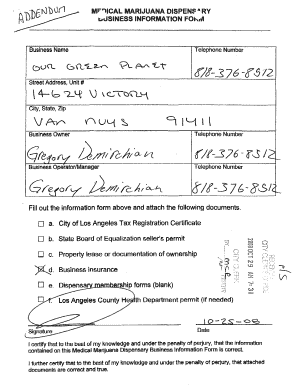 ADDENDUM
MEDICAL MARIJUANA DISPENSARY
BUSINESS INFORMATION FORM
Business Name Telephone Number
OUR GREEN PLANET 818-376-8512
Street Address, Unit #
14624 VICTORY
City, State, Zip
VAN NUYS 91411
Business Owner Telephone Number
Gregory Demirchian 818-376-8512
Business Operator/Manager Telephone Number
Gregory Demirchian 818-376-8512
Fill out the information form above and attach the following documents.
a. City of Los Angeles Tax Registration Certificate
b. State Board of Equalization seller's permit
c. Property lease or documentation of ownership
d. Business insurance
e. Dispensary membership forms (blank)
f. Los Angeles County Health Department permit (if needed)
10-25-08
Signature Date
I certify that to the best of my knowledge and under the penalty of perjury, that the information
contained on this Medical Marijuana Dispensary Business Information Form is correct.
I further certify that to the best of my knowledge and under the penalty of perjury, that attached
documents are correct and true.